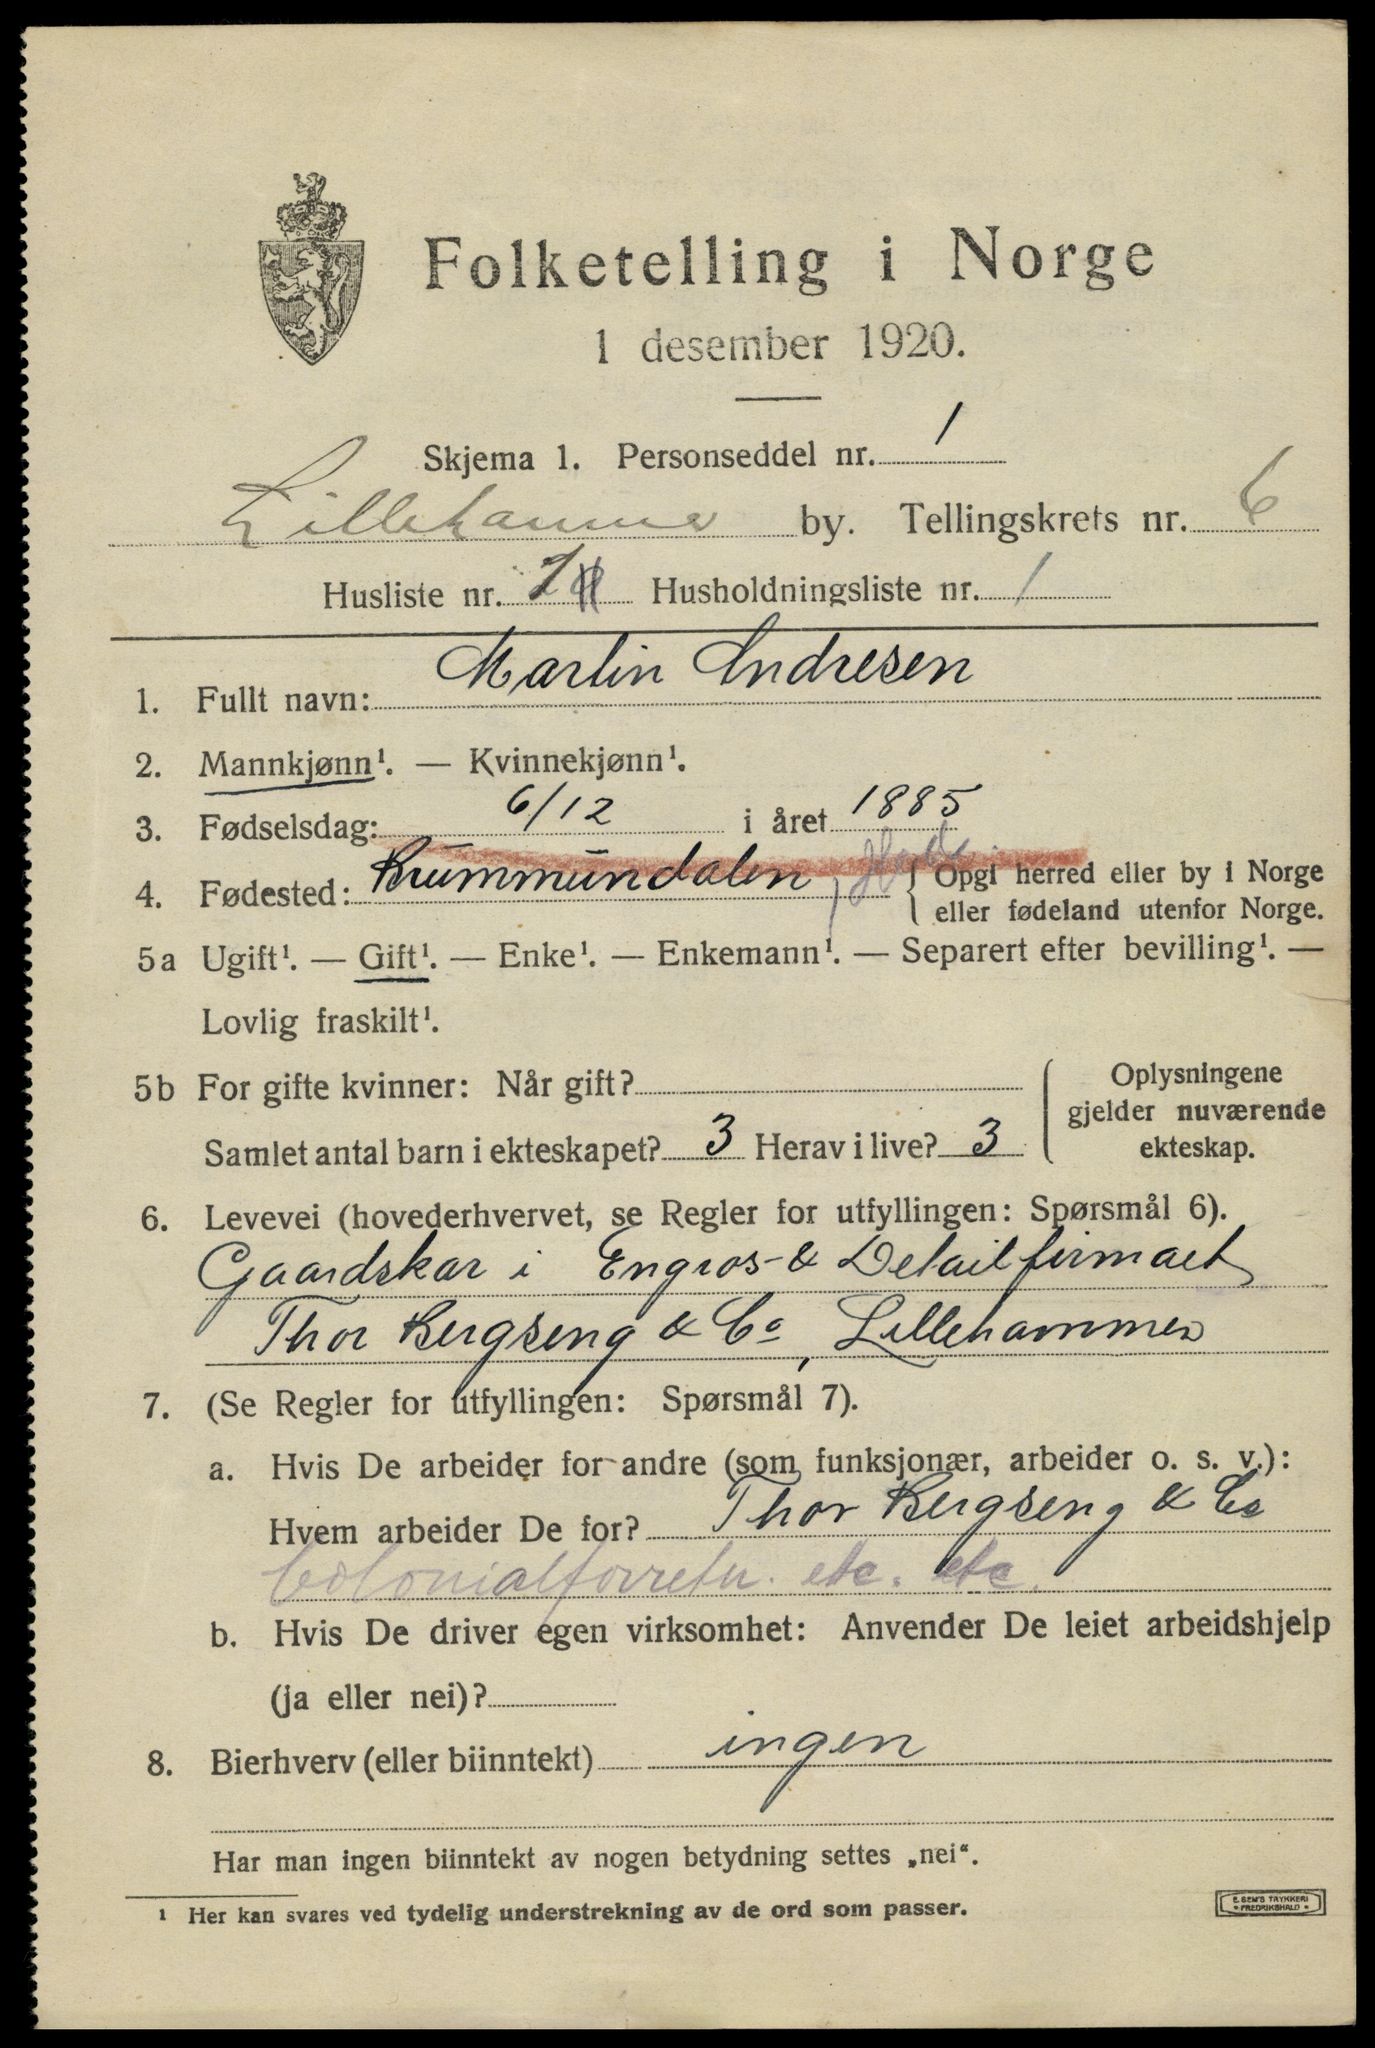 Folketelling i Norge
1 desember 1920.
Skjema 1. Personseddel nr. 1
Lillehammer by. Tellingskrets nr. 6
Husliste nr. 1 Husholdningsliste nr. 1
1. Fullt navn: Martin Andresen
2. Mannkjønn¹. — Kvinnekjønn¹.
3. Fødselsdag: 6/12 i året 1885
4. Fødested: Brummundalen, { Opgi herred eller by i Norge
eller fødeland utenfor Norge.
5a Ugift¹. — Gift¹. — Enke¹. — Enkemann¹. — Separert efter bevilling¹. —
Lovlig fraskilt¹.
5b For gifte kvinner: Når gift?
Samlet antal barn i ekteskapet? 3 Herav i live? 3
{ Oplysningene
gjelder nuværende
ekteskap.
6. Levevei (hovederhvervet, se Regler for utfyllingen: Spørsmål 6).
Gaardskar i Engros- & Detailfirmaet
Thor Bergseng & Co, Lillehammer
7. (Se Regler for utfyllingen: Spørsmål 7).
a. Hvis De arbeider for andre (som funksjonær, arbeider o. s. v.):
Hvem arbeider De for? Thor Bergseng & Co
Colonialforretn. etc. etc.
b. Hvis De driver egen virksomhet: Anvender De leiet arbeidshjelp
(ja eller nei)?
8. Bierhverv (eller biinntekt) ingen
Har man ingen biinntekt av nogen betydning settes „nei“.
¹ Her kan svares ved tydelig understrekning av de ord som passer.
E. SEM'S TRYKKERI
• FREDRIKSHALD •